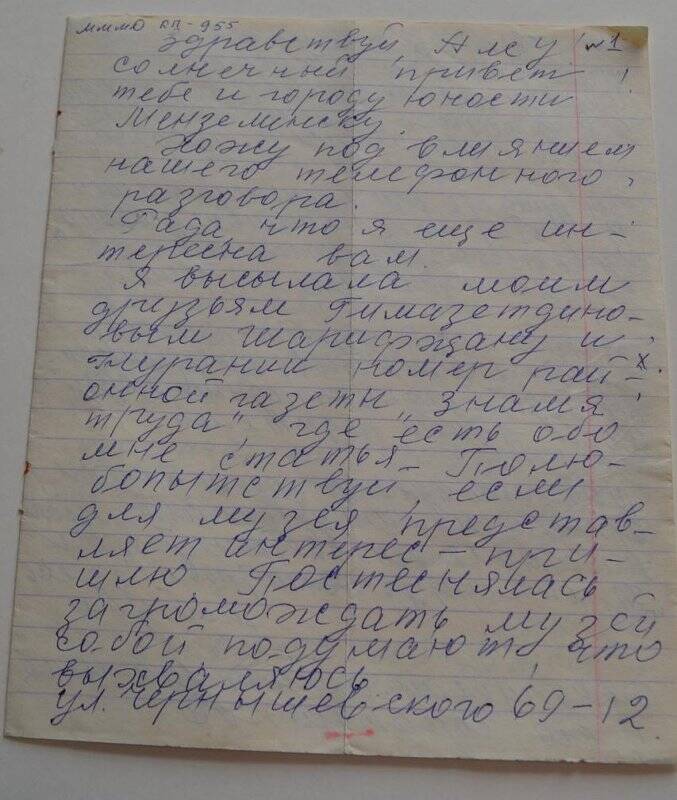 МММО ВП-955
Здравствуй Алсу! №1
солнечный привет
тебе и городу юности
Мензелинску.
Хожу под влиянием
нашего телефонного
разговора.
Рада что я еще ин-
тересна вам.
Я высылала моим
друзьям Гимазетдино-
вым Шарифжану и
Нурании номер рай-
онной газеты "Знамя
труда" где есть обо
мне статья. Полю-
бопытствуй, если
для музея представ-
ляет интерес - при-
шлю Постеснялась
загромождать музей
собой подумают, что
выхваляюсь.
ул. Чернышевского 69-12